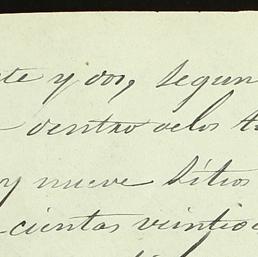 te y dos, segun
dentro delos
y nueve sitios
cientas veintio